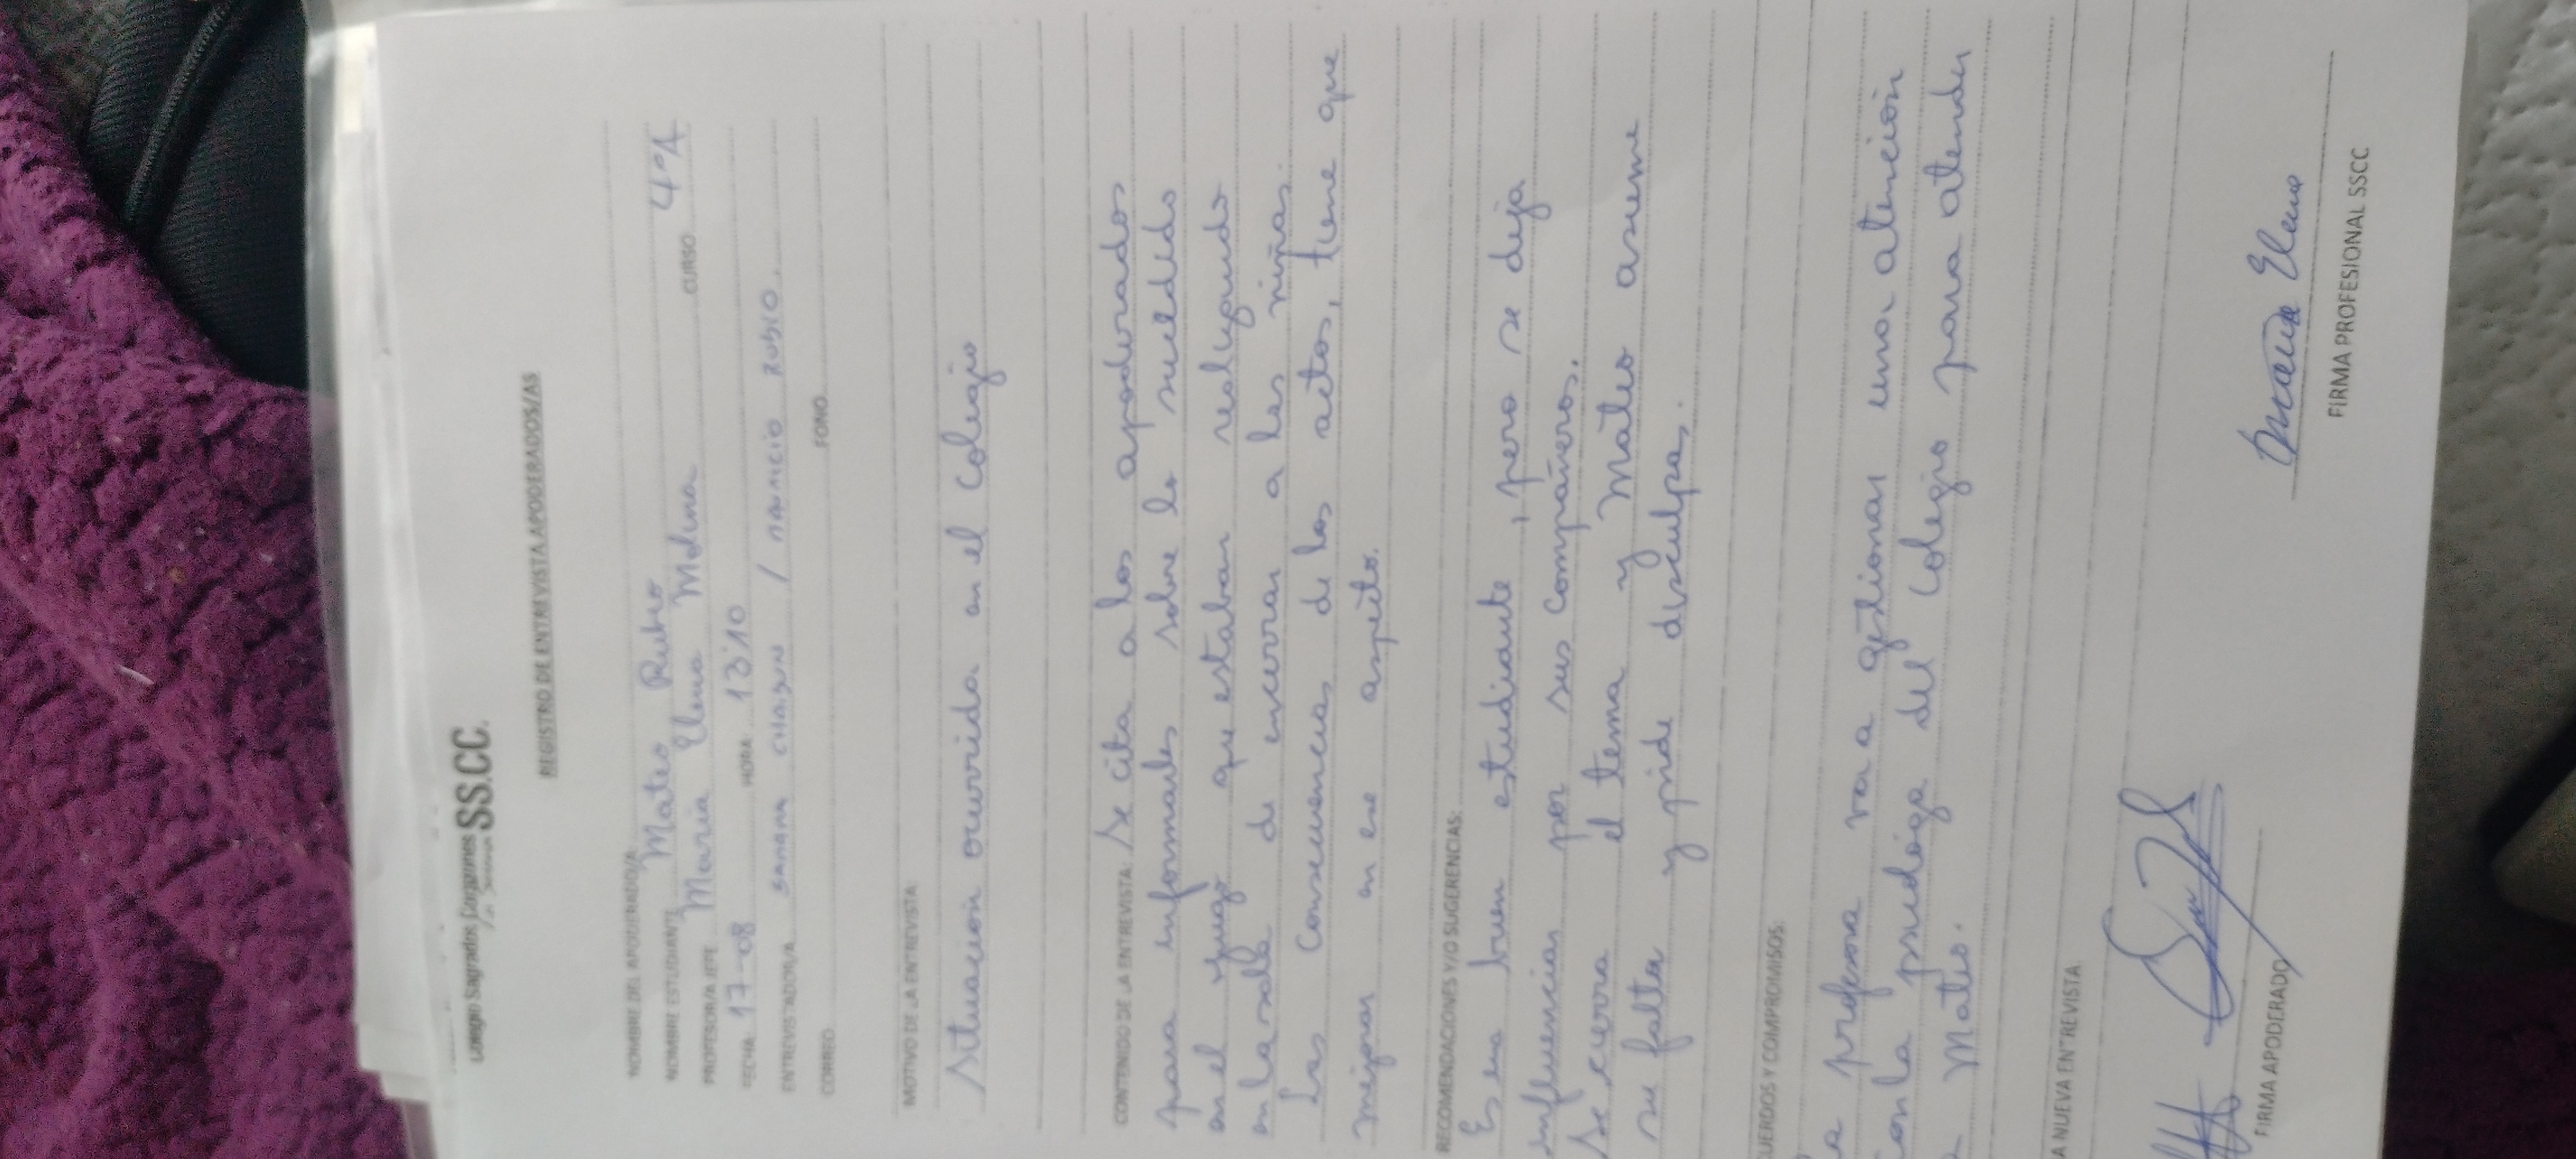 Colegio Sagrados Corazones SS.CC.
REGISTRO DE ENTREVISTA APODERADOS/AS
NOMBRE DEL APODERADO/A:
NOMBRE ESTUDIANTE Mateo Rubio CURSO 4°A
PROFESOR/A JEFE María Elena Molina
FECHA 17-08 HORA 13:10
ENTREVISTADOR/A / MAURICIO RUBIO.
CORREO FONO
MOTIVO DE LA ENTREVISTA:
Situación ocurrida en el Colegio
CONTENIDO DE LA ENTREVISTA: Se cita a los apoderados
para informarles sobre lo sucedido
en el juego que estaban realizando
en la sala de encerrar a las niñas.
Las consecuencias de los actos, tiene que
mejorar en ese aspecto.
RECOMENDACIONES Y/O SUGERENCIAS:
Es un buen estudiante, pero se deja
influenciar por sus compañeros.
Se cierra el tema y Mateo asume
su falta y pide disculpas.
CUERDOS Y COMPROMISOS:
a profesora va a gestionar una atención
con la psicóloga del Colegio para atender
a Mateo.
A NUEVA ENTREVISTA
María Elena
FIRMA APODERADO FIRMA PROFESIONAL SSCC